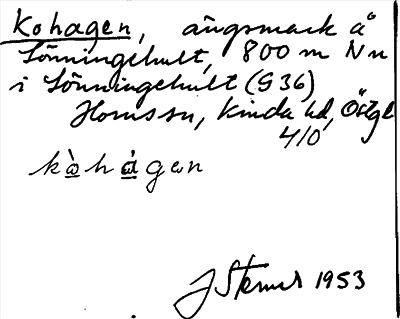 Kohagen, ängsmark å
Lönningehult, 800 m N u
i Lönningehult (936)
Kinda hd, Östgl
4/0
kòhàgan
J Stenus 1953